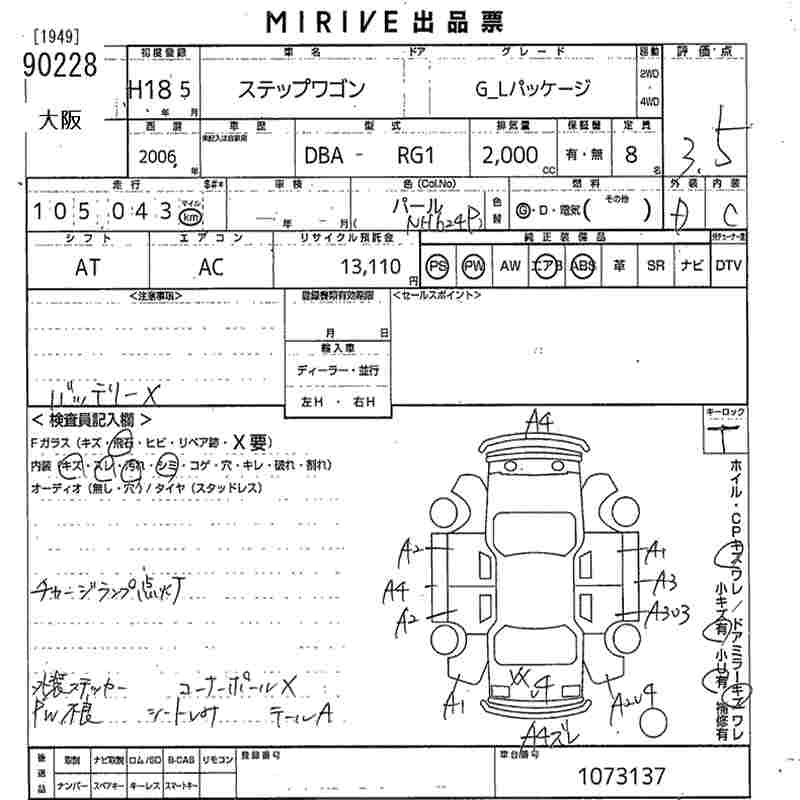 MIRIVE 出品票
[1949]
90228
大阪
初度登録 車名 ドア グレード 駆動 評価点
H18 5 年 月 ステップワゴン G_Lパッケージ 2WD 4WD
3.5
西暦 車歴 型式 排気量 保証書 定員
未記入は自家用
2006 年 DBA - RG1 2,000 CC 有・無 8 名
走行 車検 色(Col.No) 色替 燃料 外装 内装
105,043 マイル km 年 月( パール NH624P) G・D・電気( その他 ) D C
シフト エアコン リサイクル預託金 純正装備品
AT AC 13,110 円 PS PW AW エアB ABS 革 SR ナビ DTV
<注意事項> 登録書類有効期限 <セールスポイント>
月 日
輸入車
ディーラー・並行
左H ・ 右H
バッテリーX
< 検査員記入欄 > キーロック
Fガラス (キズ・飛石・ヒビ・リペア跡・X要) T
内装 (キズ・スレ・汚れ・シミ・コゲ・穴・キレ・破れ・割れ)
オーディオ (無し・穴) / タイヤ (スタッドレス)
ホイル・CPキズワレ/ドアミラーキズワレ
小キズ有 小U有 補修有
A4
A2 A1
A4 A3
A2 A3U3
チャージランプ点灯T
XX U4
A1 A2U4
A4ズレ
外装ステッカー コーナーポールX
PW不良 シートレサ テールA
後送品 取説 ナビ取説 ロム/SD B-CAS リモコン 登録番号 車台番号
ナンバー スペアキー キーレス スマートキー 1073137